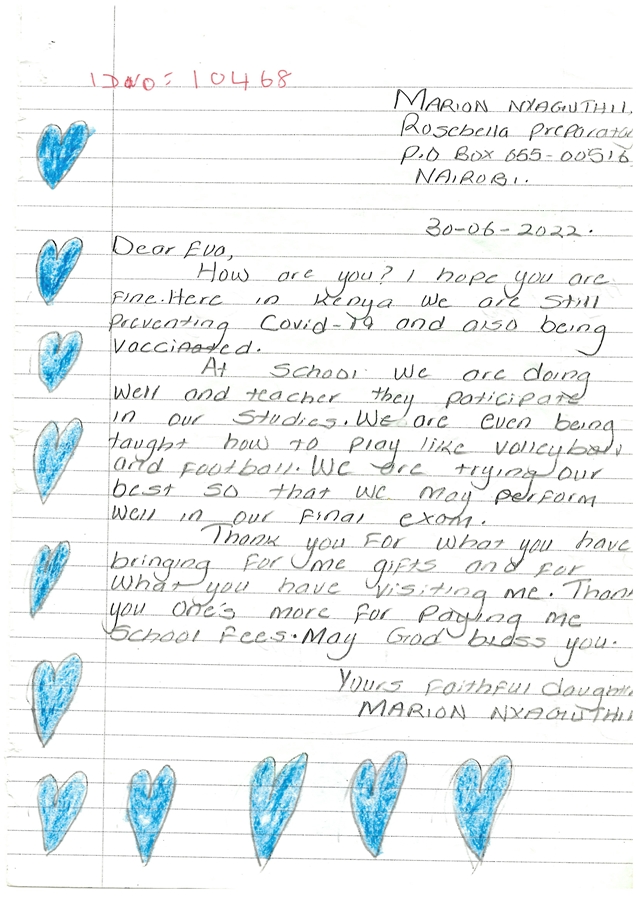 IDNO: 10468
MARION NYAGUTHII.
Rosebella preparato
P.O BOX 655-00516
NAIROBI.
30-06-2022.
Dear Eva,
How are you? I hope you are
Fine. Here in Kenya we are still
preventing Covid-19 and also being
vaccinated.
At school we are doing
well and teacher they paticipate
in our studies. We are even being
taught how to play like volleyball
and football. We are trying our
best so that we may perform
well in our final exam.
Thank you for what you have
bringing for me gifts and for
what you have visiting me. Thank
you one's more for paying me
school fees. May God bless you.
Yours faithful daughte
MARION NYAGUTHII